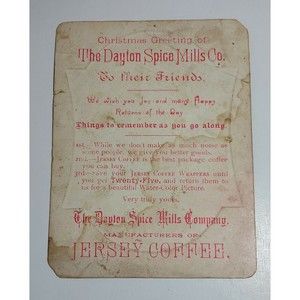 Christmas Greeting of
The Dayton Spice Mills Co.
To their Friends.
We wish you joy and many Happy
Returns of the Day
Things to remember as you go along.
1st.—While we don't make as much noise as
some people, we give you better goods.
2nd.—Jersey Coffee is the best package coffee
you can buy.
3rd.—Save your Jersey Coffee Wrappers until
you get Twenty-Five, and return them to
us for a beautiful Water-Color Picture.
Very truly yours,
The Dayton Spice Mills Company,
MANUFACTURERS OF
JERSEY COFFEE.